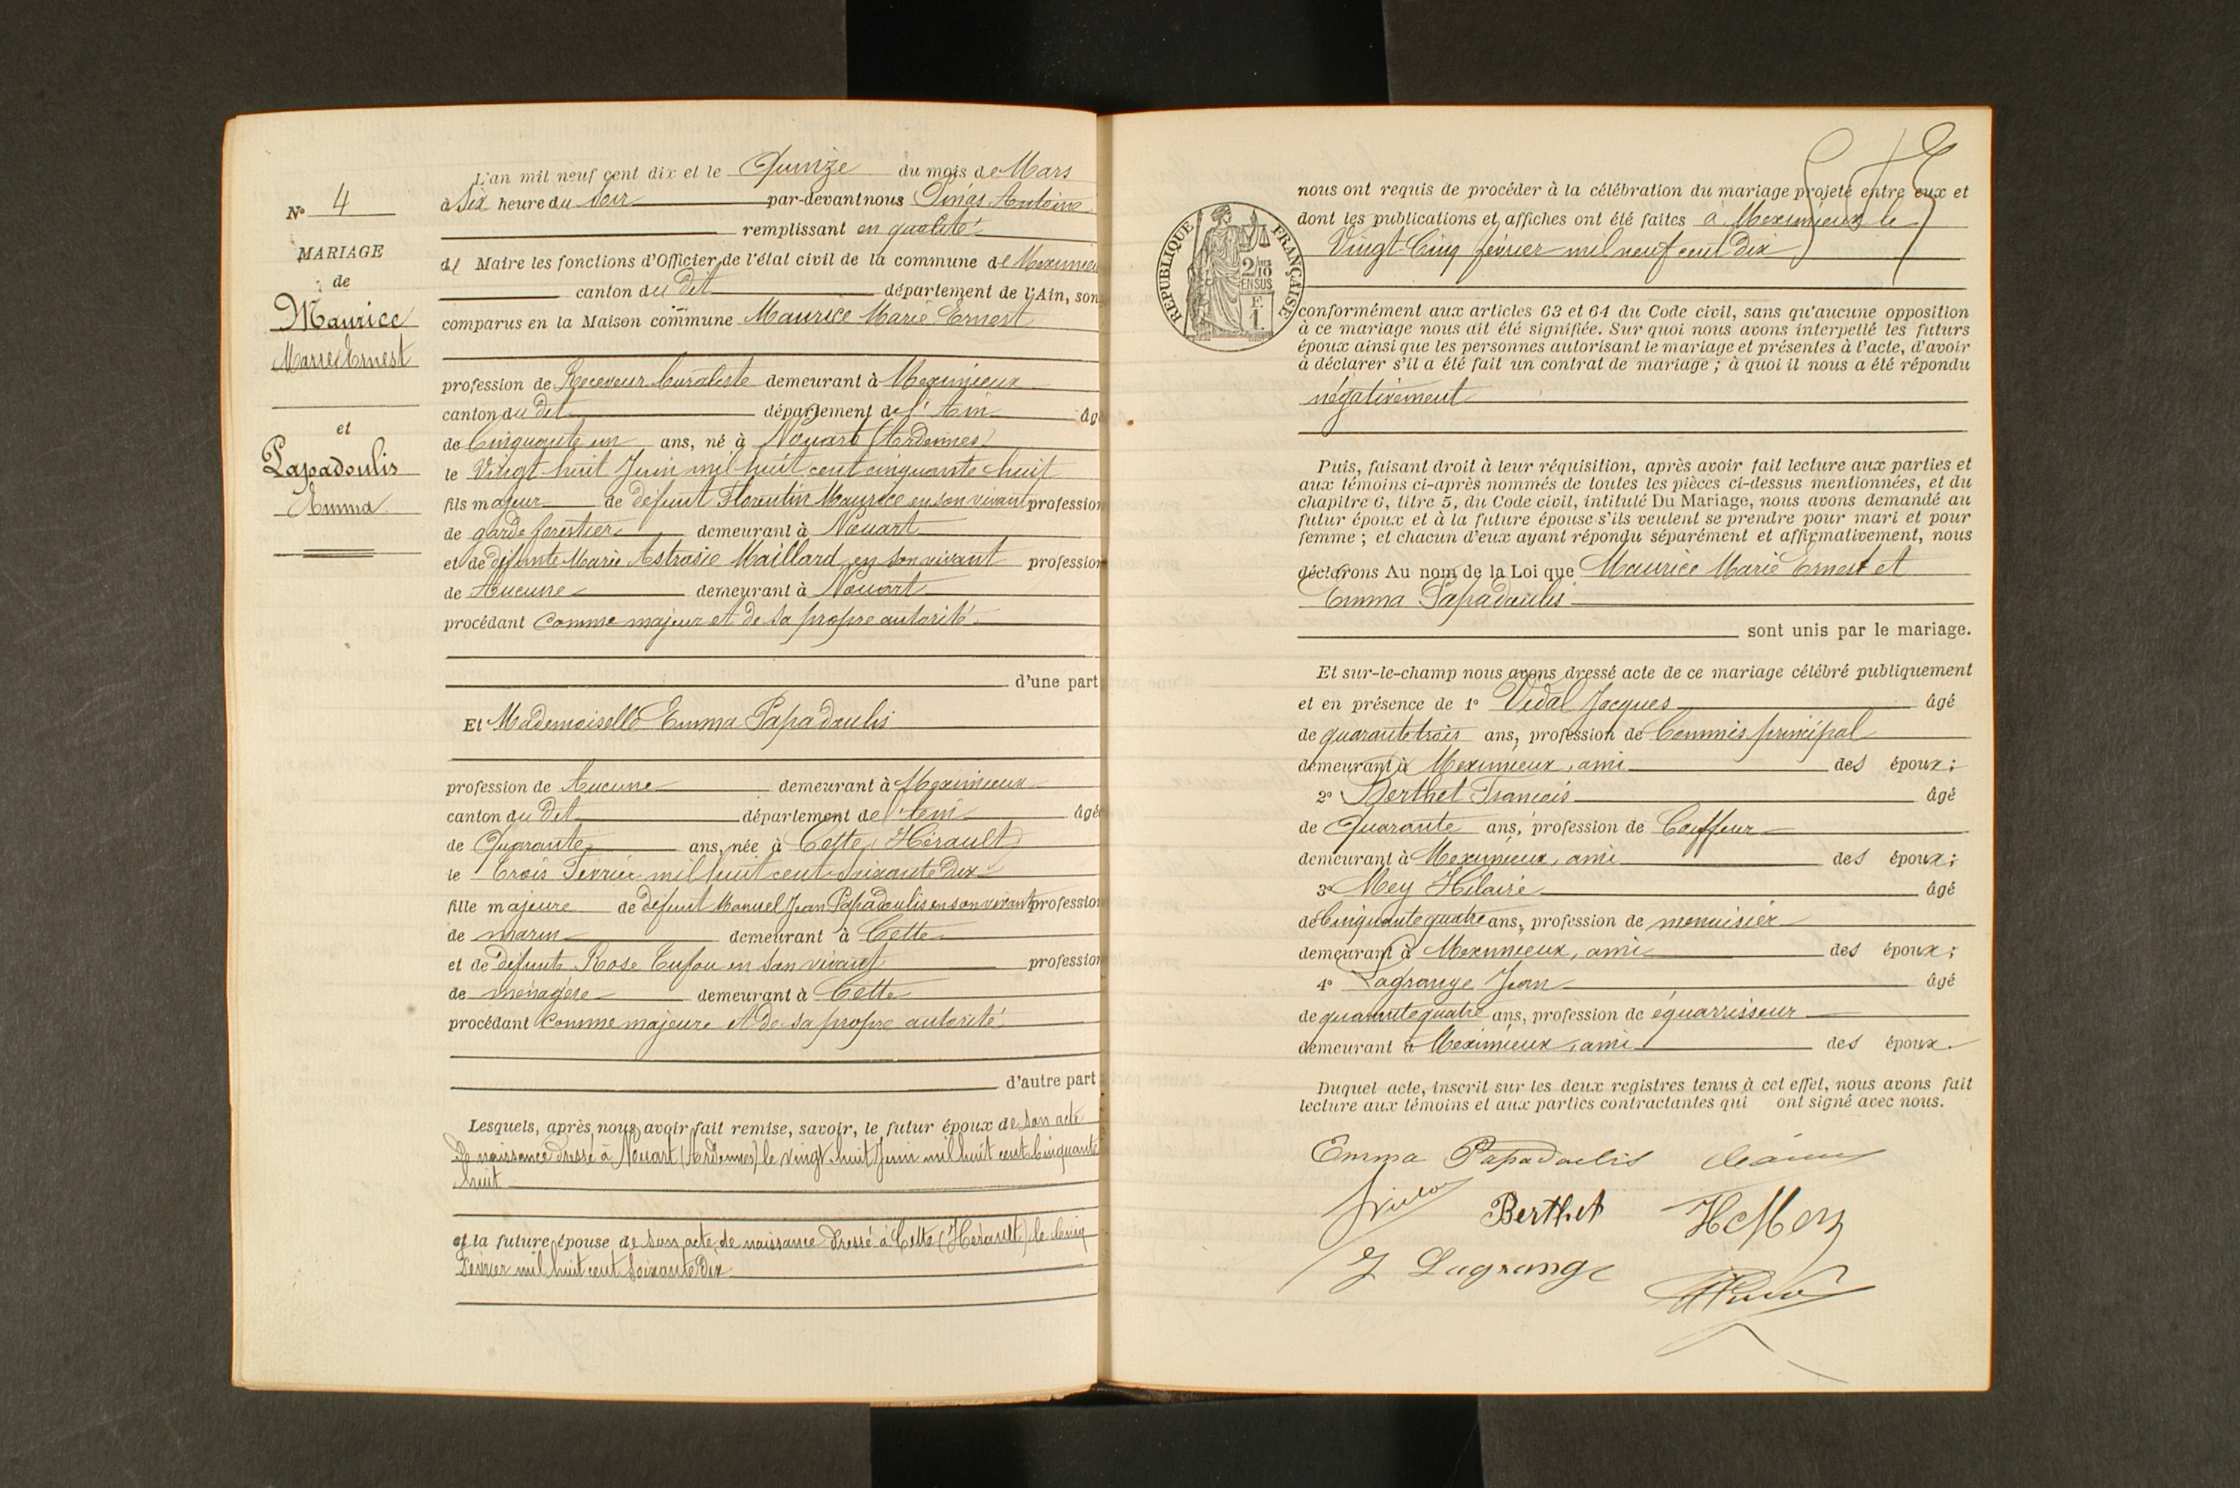 N° 4
MARIAGE
de
Maurice
Marie Ernest
et
Papadoulis
Emma
L'an mil neuf cent dix et le Quinze du mois de Mars
à Six heure du Soir par-devant nous Antoine
remplissant en qualité
de Maire les fonctions d'Officier de l'état civil de la commune de Meximieux
canton du dit département de l'Ain, sont
comparus en la Maison commune Maurice Marie Ernest
profession de Receveur buraliste demeurant à Meximieux
canton du dit département de l'Ain âgé
de Cinquante un ans, né à Nouart (Ardennes)
le Vingt huit Juin mil huit cent cinquante huit
fils majeur de défunt Florentin Maurice en son vivant profession
de garde forestier demeurant à Nouart
et de défunte Marie Astrasie Maillard en son vivant profession
de Aucune demeurant à Nouart
procédant comme majeur et de sa propre autorité
d'une part
Et Mademoiselle Emma Papadoulis
profession de Aucune demeurant à Meximieux
canton du dit département de l'Ain âgée
de Quarante ans, née à Cette (Hérault)
le trois Février mil huit cent soixante Dix
fille majeure de défunt Manuel Jean Papadoulis en son vivant profession
de marin demeurant à Cette
et de défunte Rose en son vivant profession
de ménagère demeurant à Cette
procédant comme majeure et de sa propre autorité
d'autre part
Lesquels, après nous avoir fait remise, savoir, le futur époux de son acte
de naissance dressé à Nouart (Ardennes) le vingt huit Juin mil huit cent cinquante
huit
et la future épouse de son acte de naissance dressé à Cette (Hérault) le cinq
Février mil huit cent soixante Dix
RÉPUBLIQUE FRANÇAISE
2/10
EN SUS
nous ont requis de procéder à la célébration du mariage projeté entre eux et
dont les publications et affiches ont été faites à Meximieux le
Vingt Cinq février mil neuf cent dix
conformément aux articles 63 et 64 du Code civil, sans qu'aucune opposition
à ce mariage nous ait été signifiée. Sur quoi nous avons interpellé les futurs
époux ainsi que les personnes autorisant le mariage et présentes à l'acte, d'avoir
à déclarer s'il a été fait un contrat de mariage ; à quoi il nous a été répondu
négativement
Puis, faisant droit à leur réquisition, après avoir fait lecture aux parties et
aux témoins ci-après nommés de toutes les pièces ci-dessus mentionnées, et du
chapitre 6, titre 5, du Code civil, intitulé Du Mariage, nous avons demandé au
futur époux et à la future épouse s'ils veulent se prendre pour mari et pour
femme ; et chacun d'eux ayant répondu séparément et affirmativement, nous
déclarons Au nom de la Loi que Maurice Marie Ernest et
Emma Papadoulis
sont unis par le mariage.
Et sur-le-champ nous avons dressé acte de ce mariage célébré publiquement
et en présence de 1° Vidal Jacques âgé
de quarante trois ans, profession de Commis principal
demeurant à Meximieux, ami des époux ;
2° Berthet François âgé
de Quarante ans, profession de Coiffeur
demeurant à Meximieux, ami des époux ;
3° Mey Hilaire âgé
de Cinquante quatre ans, profession de menuisier
demeurant à Meximieux, ami des époux ;
4° Lagrange Jean âgé
de quarante quatre ans, profession de équarrisseur
demeurant à Meximieux, ami des époux.
Duquel acte, inscrit sur les deux registres tenus à cet effet, nous avons fait
lecture aux témoins et aux parties contractantes qui ont signé avec nous.
Emma Papadoulis
Berthet H Mey
J Lagrange